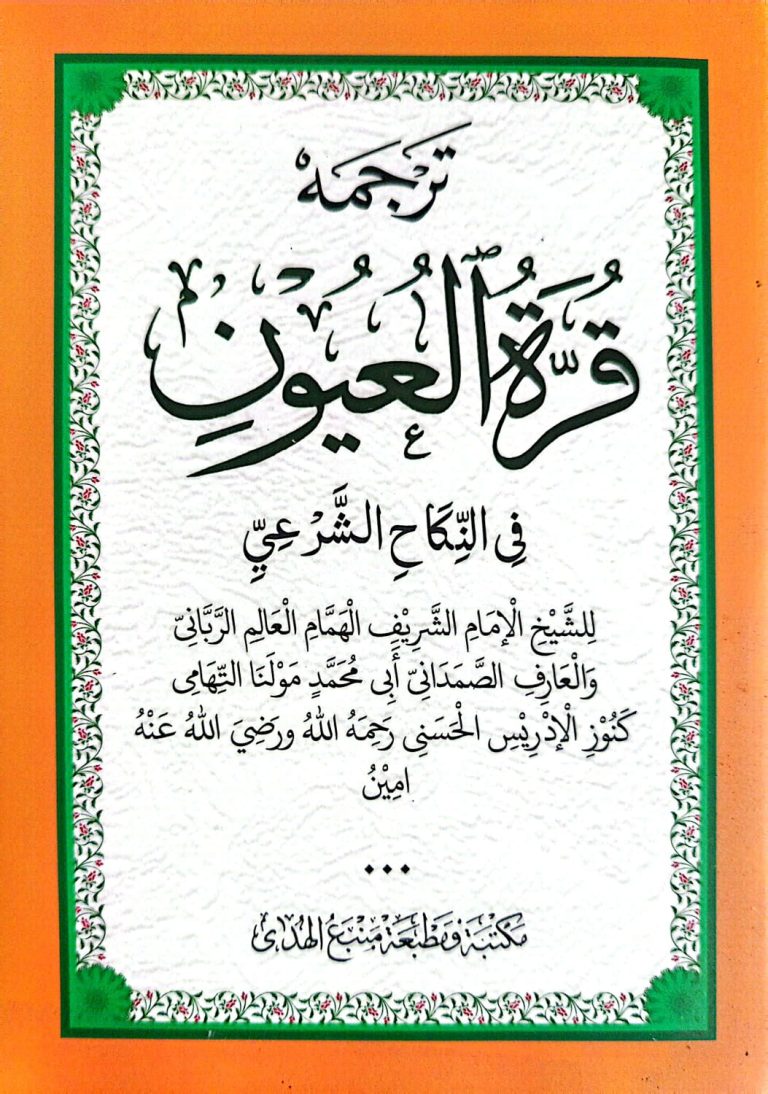 تَرْجَمَهْ
قُرَّةُ ٱلْعُيُونِ
فِي النِّكَاحِ الشَّرْعِيِّ
لِلشَّيْخِ الْإِمَامِ الشَّرِيْفِ الْهَمَّامِ الْعَالِمِ الرَّبَّانِىّ
وَالْعَارِفِ الصَّمَدَانِىّ أَبِى مُحَمَّدٍ مَوْلَنَا التِّهَامِى
كَنُوْزِ الْإِدْرِيْسِ الْحَسَنِى رَحِمَهُ اللهُ ورَضِيَ اللهُ عَنْهُ
امِيْنُ
مَكْتَبَة وَمَطْبَعَة مَنْبَعُ الهُدَى